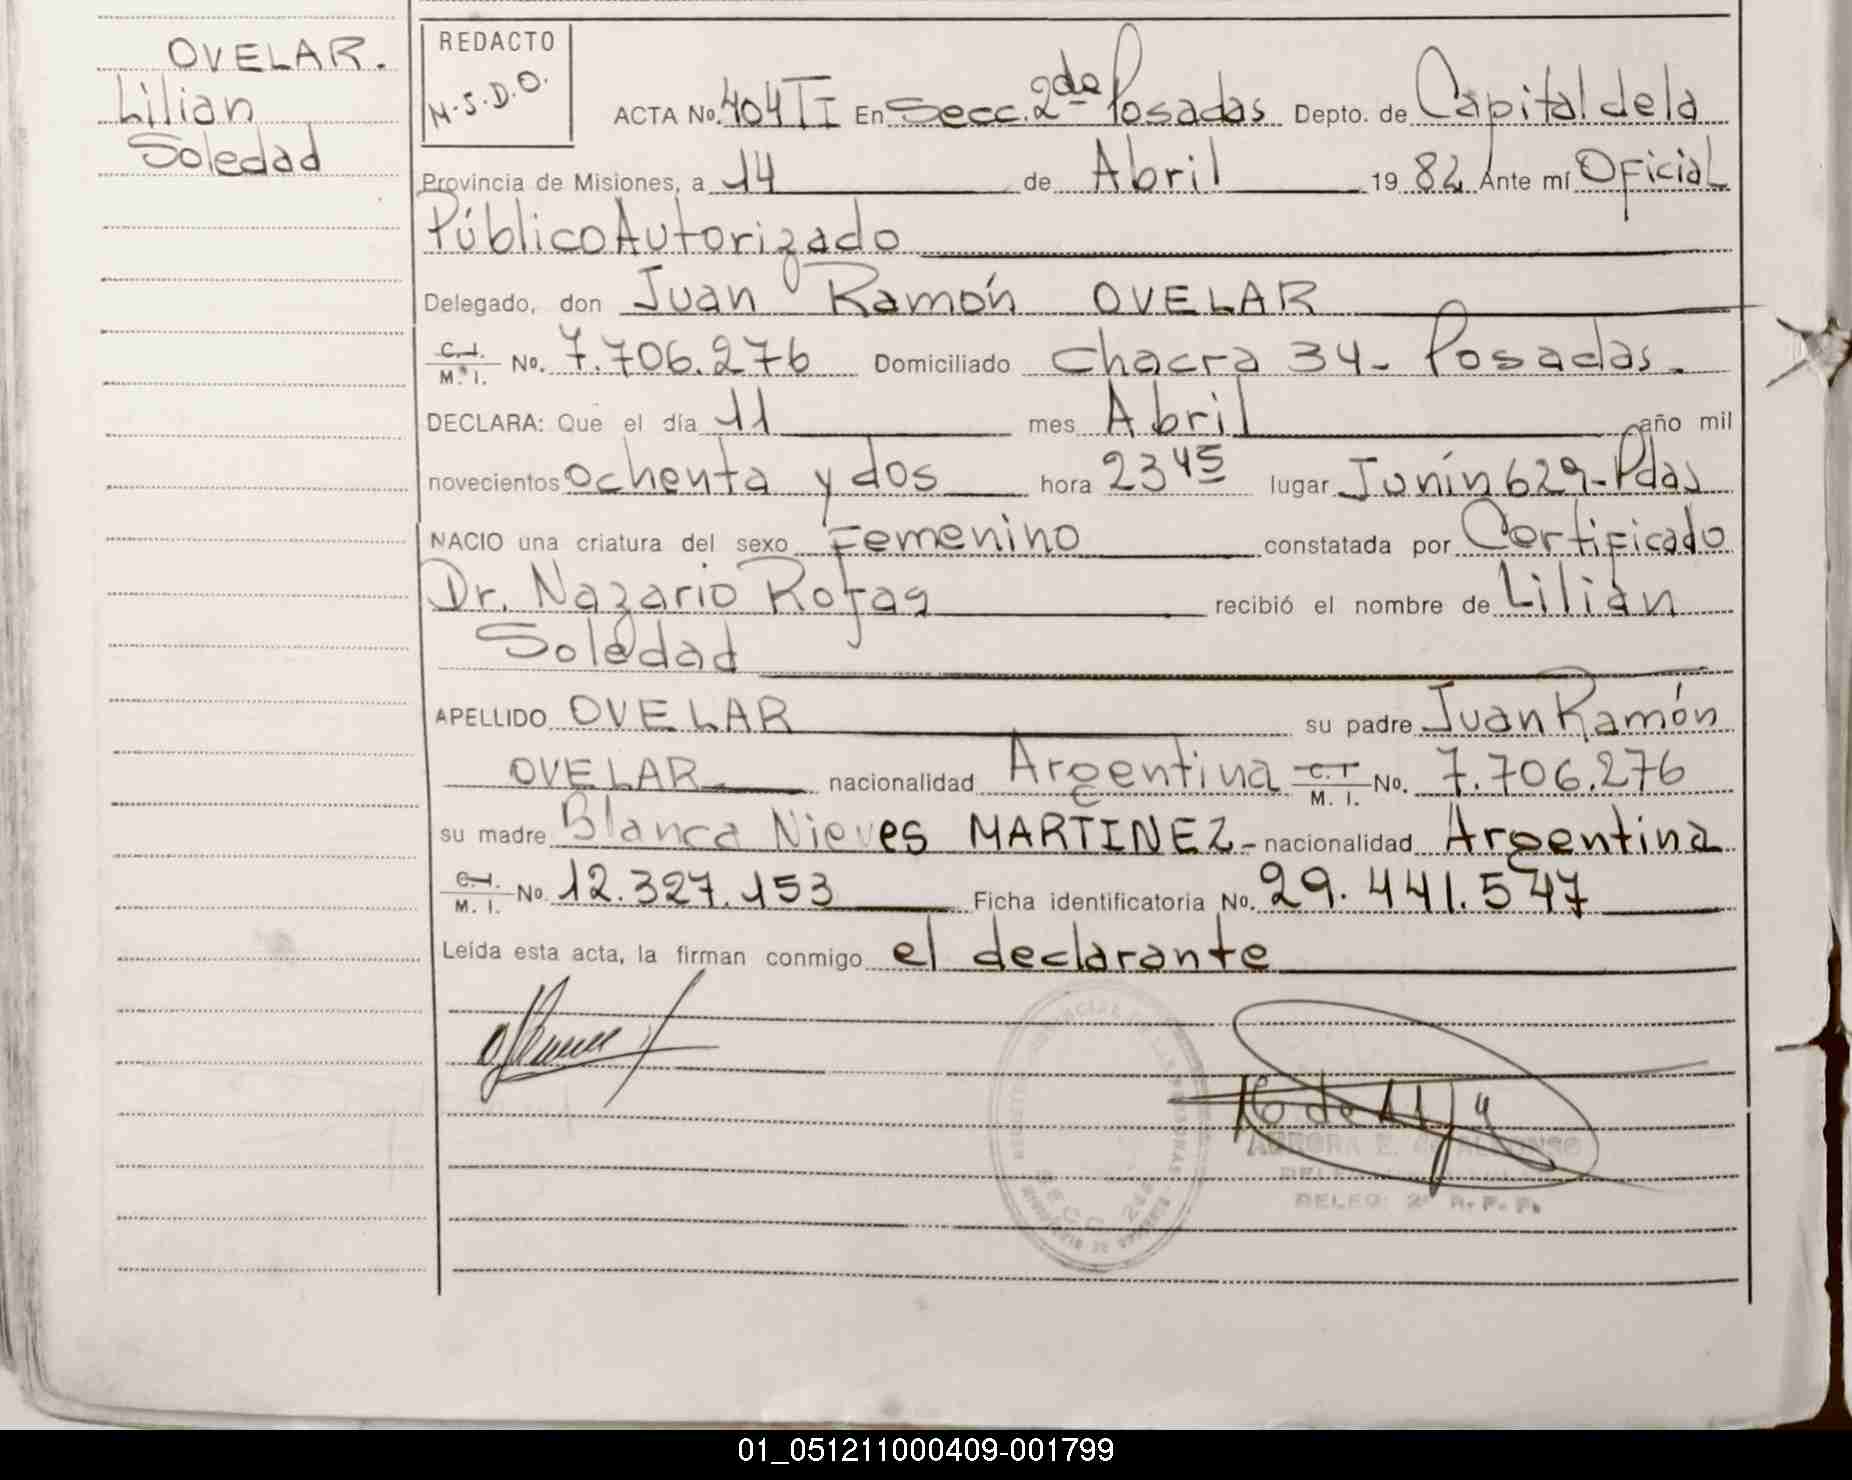 OVELAR.
Lilian
Soledad
REDACTO
M.S.D.O.
ACTA No. 404 TI En Secc. 2da Posadas Depto. de Capital de la
Provincia de Misiones, a 14 de Abril 19 82 Ante mí Oficial
Público Autorizado
Delegado, don Juan Ramón OVELAR
C.I. M.I. No. 7.706.276 Domiciliado Chacra 34- Posadas.
DECLARA: Que el día 11 mes Abril año mil
novecientos ochenta y dos hora 23 45 lugar Junín 629-Pdas
NACIO una criatura del sexo Femenino constatada por Certificado
Dr. Nazario Rojas recibió el nombre de Lilian
Soledad
APELLIDO OVELAR su padre Juan Ramón
OVELAR nacionalidad Argentina C.I. M.I. No. 7.706.276
su madre Blanca Nieves MARTINEZ- nacionalidad Argentina
C.I. M.I. No. 12.327.153 Ficha identificatoria No. 29.441.547
Leída esta acta, la firman conmigo el declarante
SECC. 2da
DELEG. 2ª R. P. P.
01_051211000409-001799